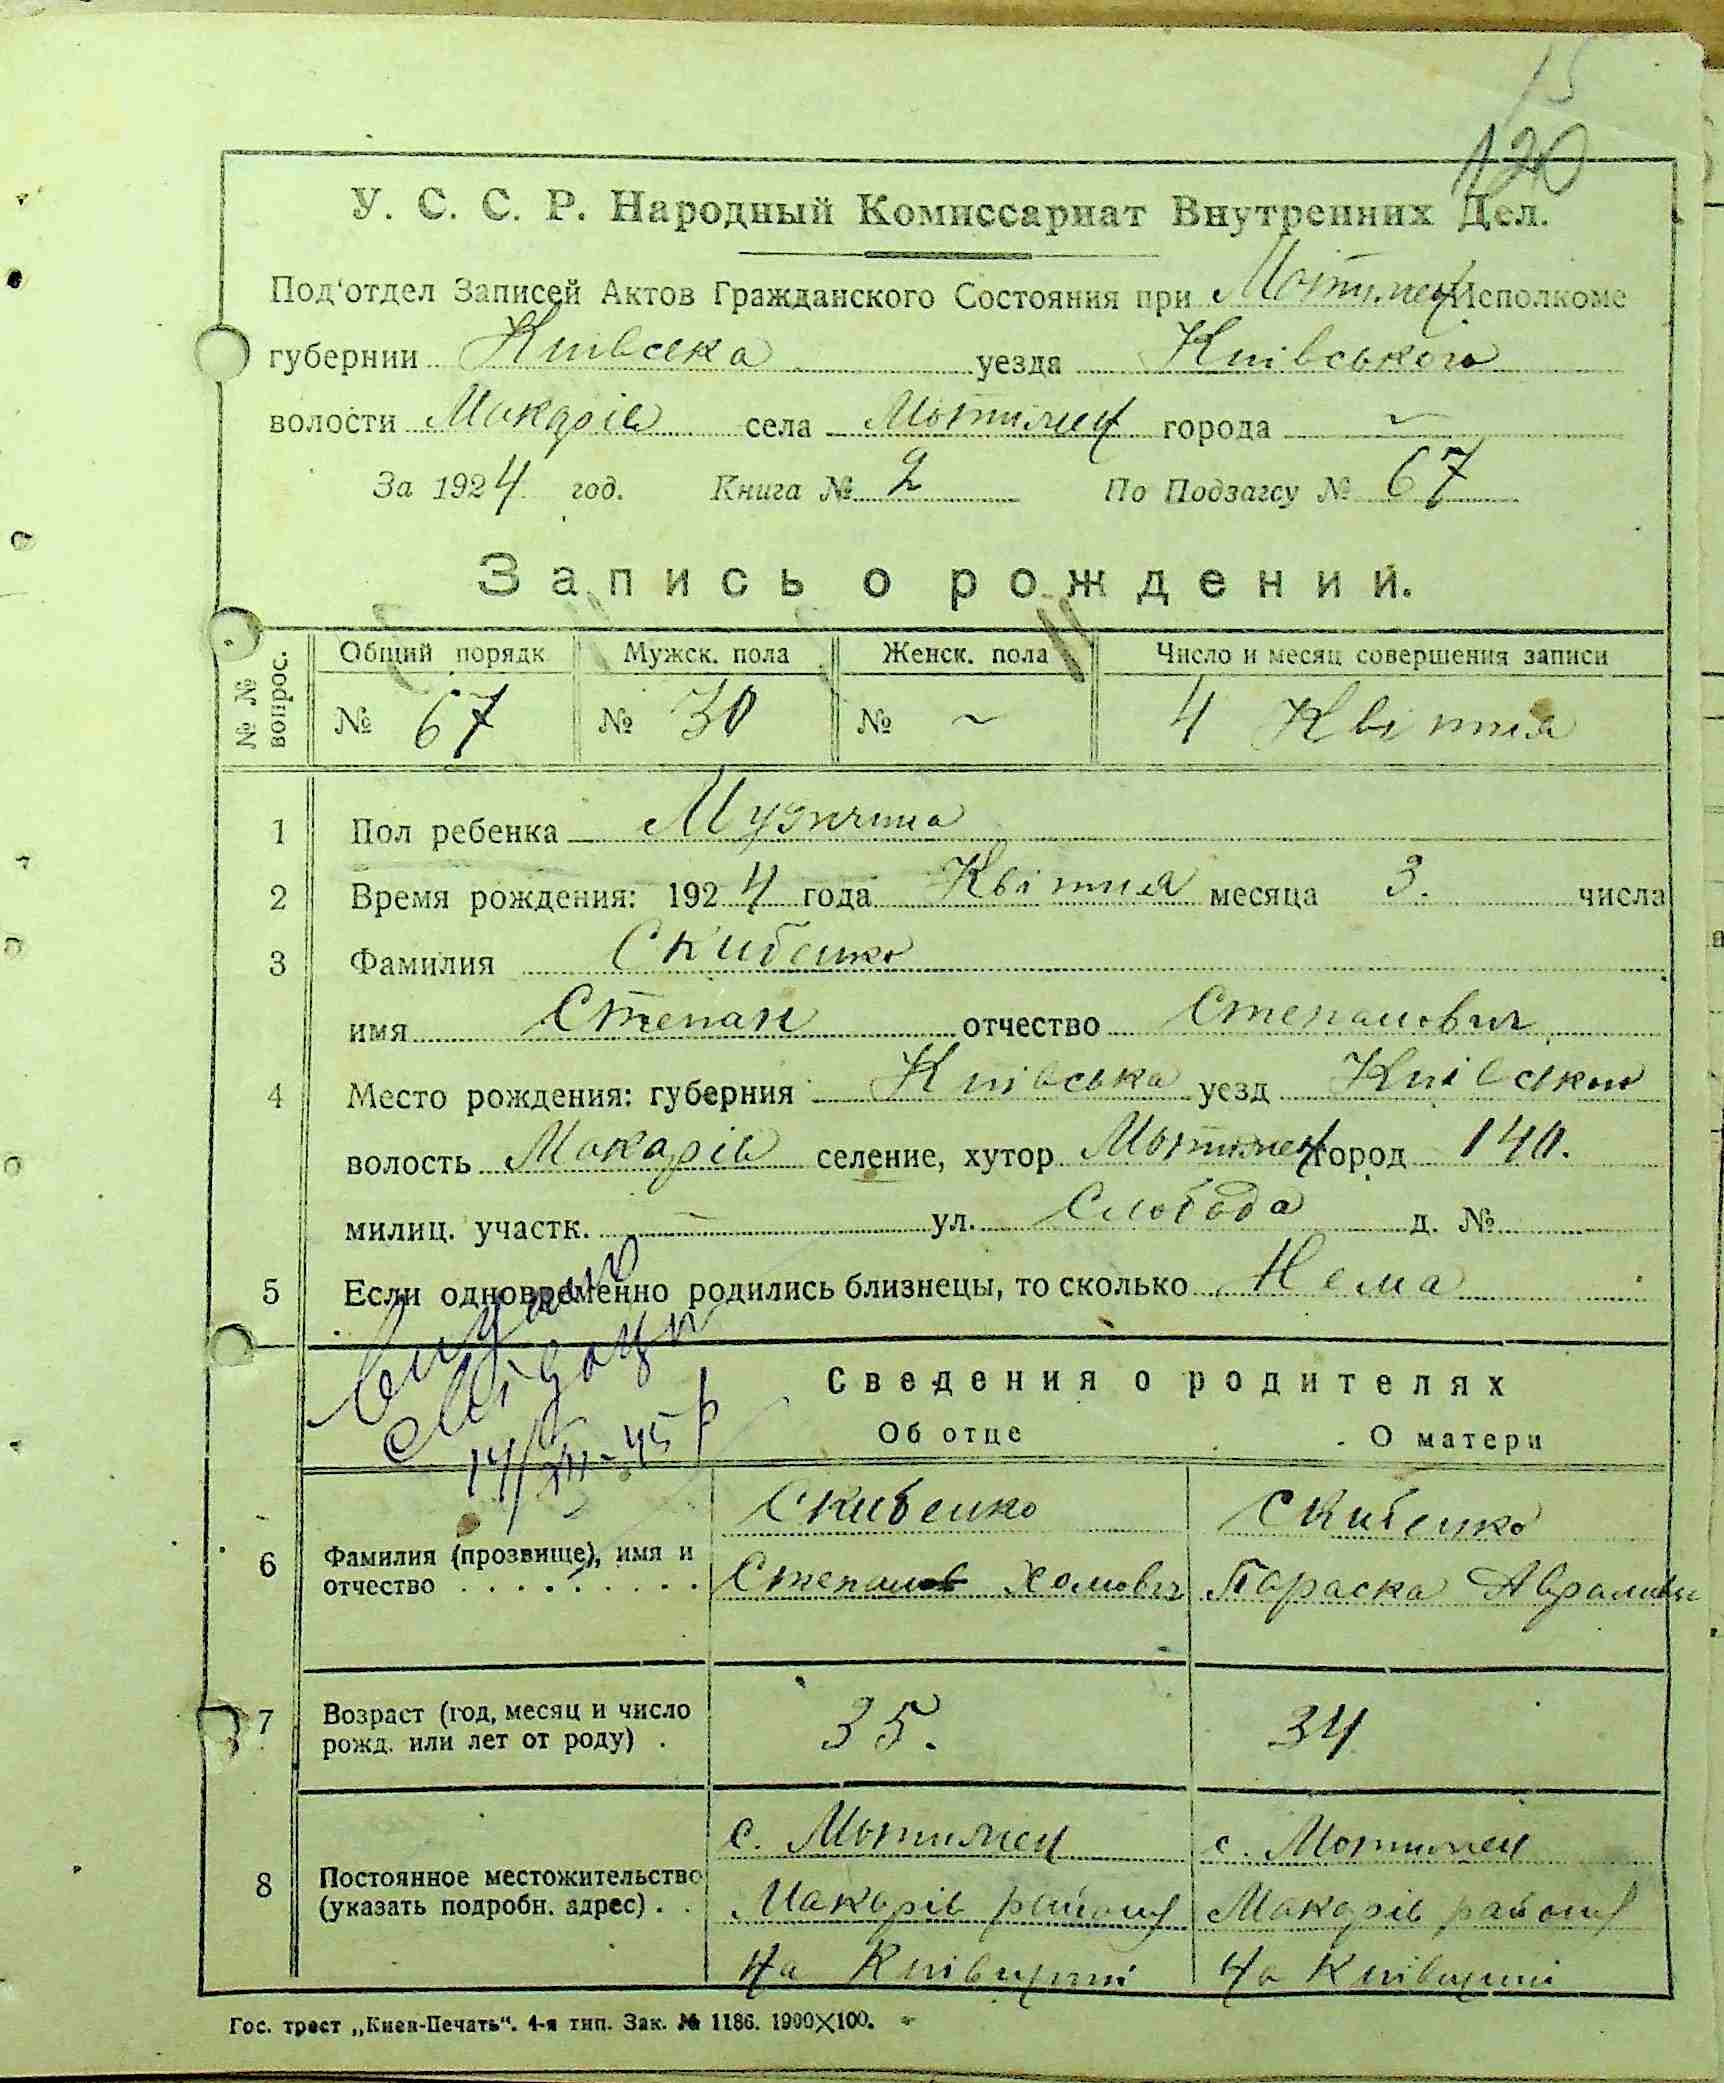 15
120
У. С. С. Р. Народный Комиссариат Внутренних Дел.
Под'отдел Записей Актов Гражданского Состояния при Мотижен Исполкоме
губернии Київська уезда Київського
волости Макарів села Мотижен города ~
За 1924 год. Книга № 2 По Подзагсу № 67
Запись о рождении.
№ № вопрос. Общий порядк Мужск. пола Женск. пола Число и месяц совершения записи
№ 67 № 30 № ~ 4 Квітня
1 Пол ребенка Мужчина
2 Время рождения: 1924 года Квітня месяца 3. числа
3 Фамилия Скибенко
имя Степан отчество Степанович
4 Место рождения: губерния Київська уезд Київском
волость Макарів селение, хутор Мотижен город 140.
милиц. участк. — ул. Слобода д. №
5 Если одновременно родились близнецы, то сколько Нема
Видано
Свідоцт
14/XII-45 р
Сведения о родителях
Об отце О матери
Скибенко Скибенко
6 Фамилия (прозвище), имя и
отчество . . . . . . . . . Степан Хомович Параска Аврамівн
7 Возраст (год, месяц и число
рожд. или лет от роду) . 35. 34
с. Мотижен с. Мотижен
8 Постоянное местожительство
(указать подробн. адрес) . . Макарів району Макарів району
На Київщині На Київщині
Гос. трест „Киев-Печать". 4-я тип. Зак. № 1186. 1000×100.